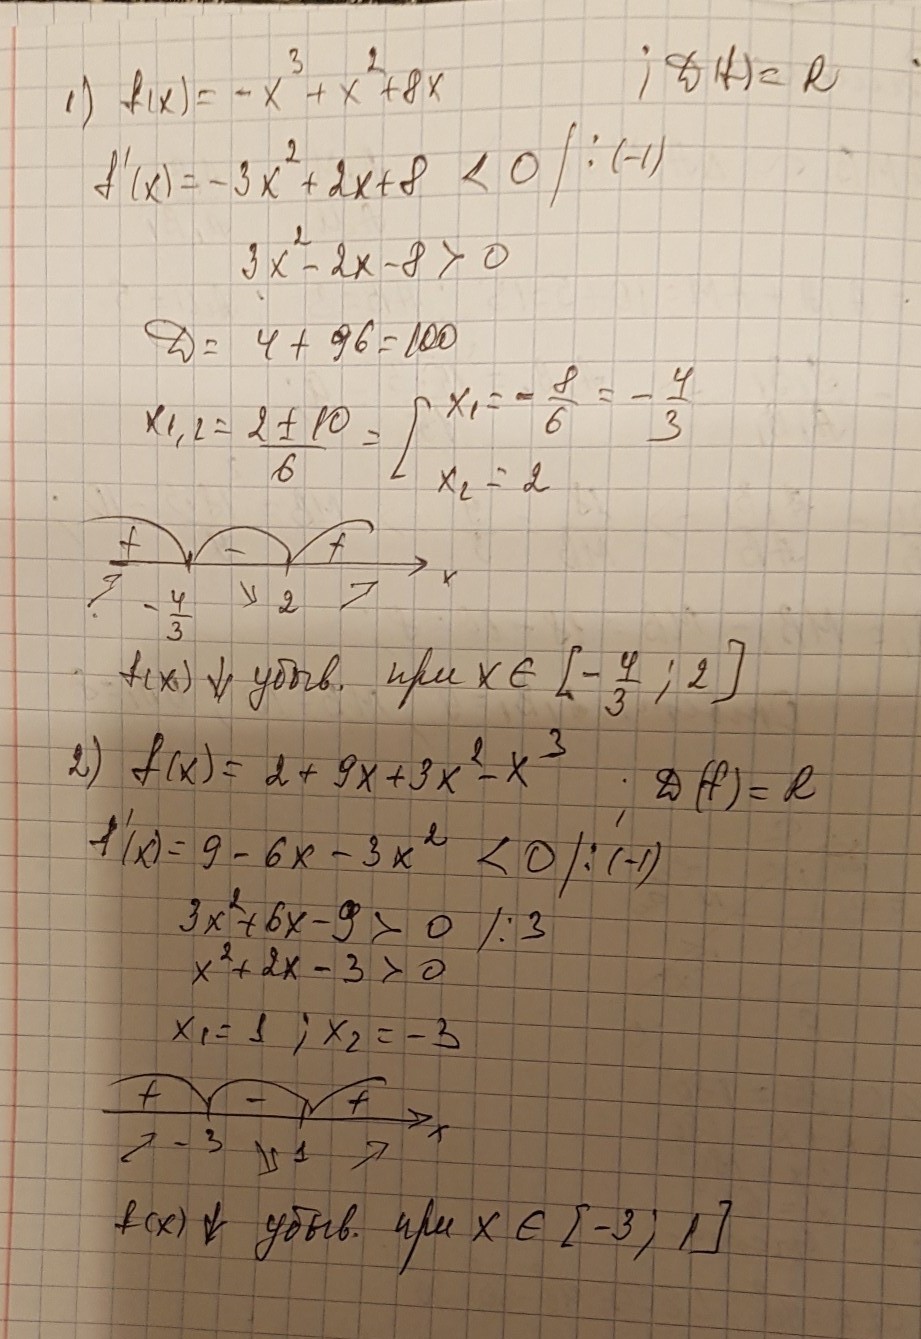 1) f(x) = -x³ + x² + 8x ; D(f) = R
f'(x) = -3x² + 2x + 8 < 0 /: (-1)
3x² - 2x - 8 > 0
D = 4 + 96 = 100
x₁,₂ = (2 ± 10)/6 = [ x₁ = -8/6 = -4/3
x₂ = 2
+ - +
↗ -4/3 ↘ 2 ↗ x
f(x) ↓ убыв. при x ∈ [-4/3 ; 2]
2) f(x) = 2 + 9x + 3x² - x³ ; D(f) = R
f'(x) = 9 - 6x - 3x² < 0 /: (-1)
3x² + 6x - 9 > 0 /: 3
x² + 2x - 3 > 0
x₁ = 1 ; x₂ = -3
+ - +
↗ -3 ↘ 1 ↗ x
f(x) ↓ убыв. при x ∈ [-3 ; 1]